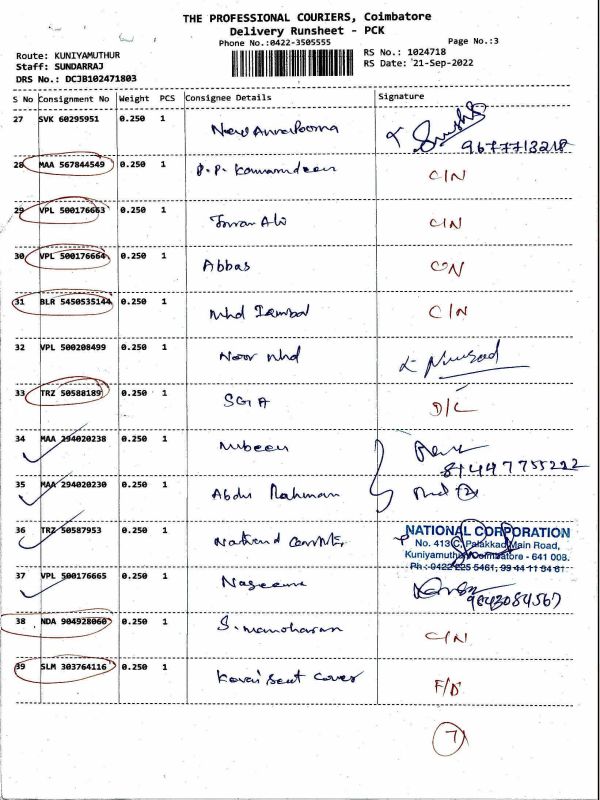 THE PROFESSIONAL COURIERS, Coimbatore
Delivery Runsheet - PCK
Phone No.:0422-3505555 Page No.:3
Route: KUNIYAMUTHUR RS No.: 1024718
Staff: SUNDARRAJ RS Date: 21-Sep-2022
DRS No.: DCJB102471803
S No Consignment No Weight PCS Consignee Details Signature
27 SVK 60295951 0.250 1 New Annapoorna
9677713218
28 MAA 567844549 0.250 1 P.P. C/N
29 VPL 500176663 0.250 1 Imran Ali C/N
30 VPL 500176664 0.250 1 Abbas C/N
31 BLR 5450535144 0.250 1 Mhd C/N
32 VPL 500208499 0.250 1 Noor Mhd
33 TRZ 50588189 0.250 1 SGA D/C
34 MAA 294020238 0.250 1 Mubeen
35 MAA 294020230 0.250 1 Abdu Rahman
36 TRZ 50587953 0.250 1 National
NATIONAL CORPORATION
No. 413 C, Palakkad Main Road,
Kuniyamuthur, Coimbatore - 641 008.
37 VPL 500176665 0.250 1 Nageema
9843084567
38 NDA 904928060 0.250 1 S. Manoharan C/N
39 SLM 303764116 0.250 1 Kovai Seat Cover F/D
7